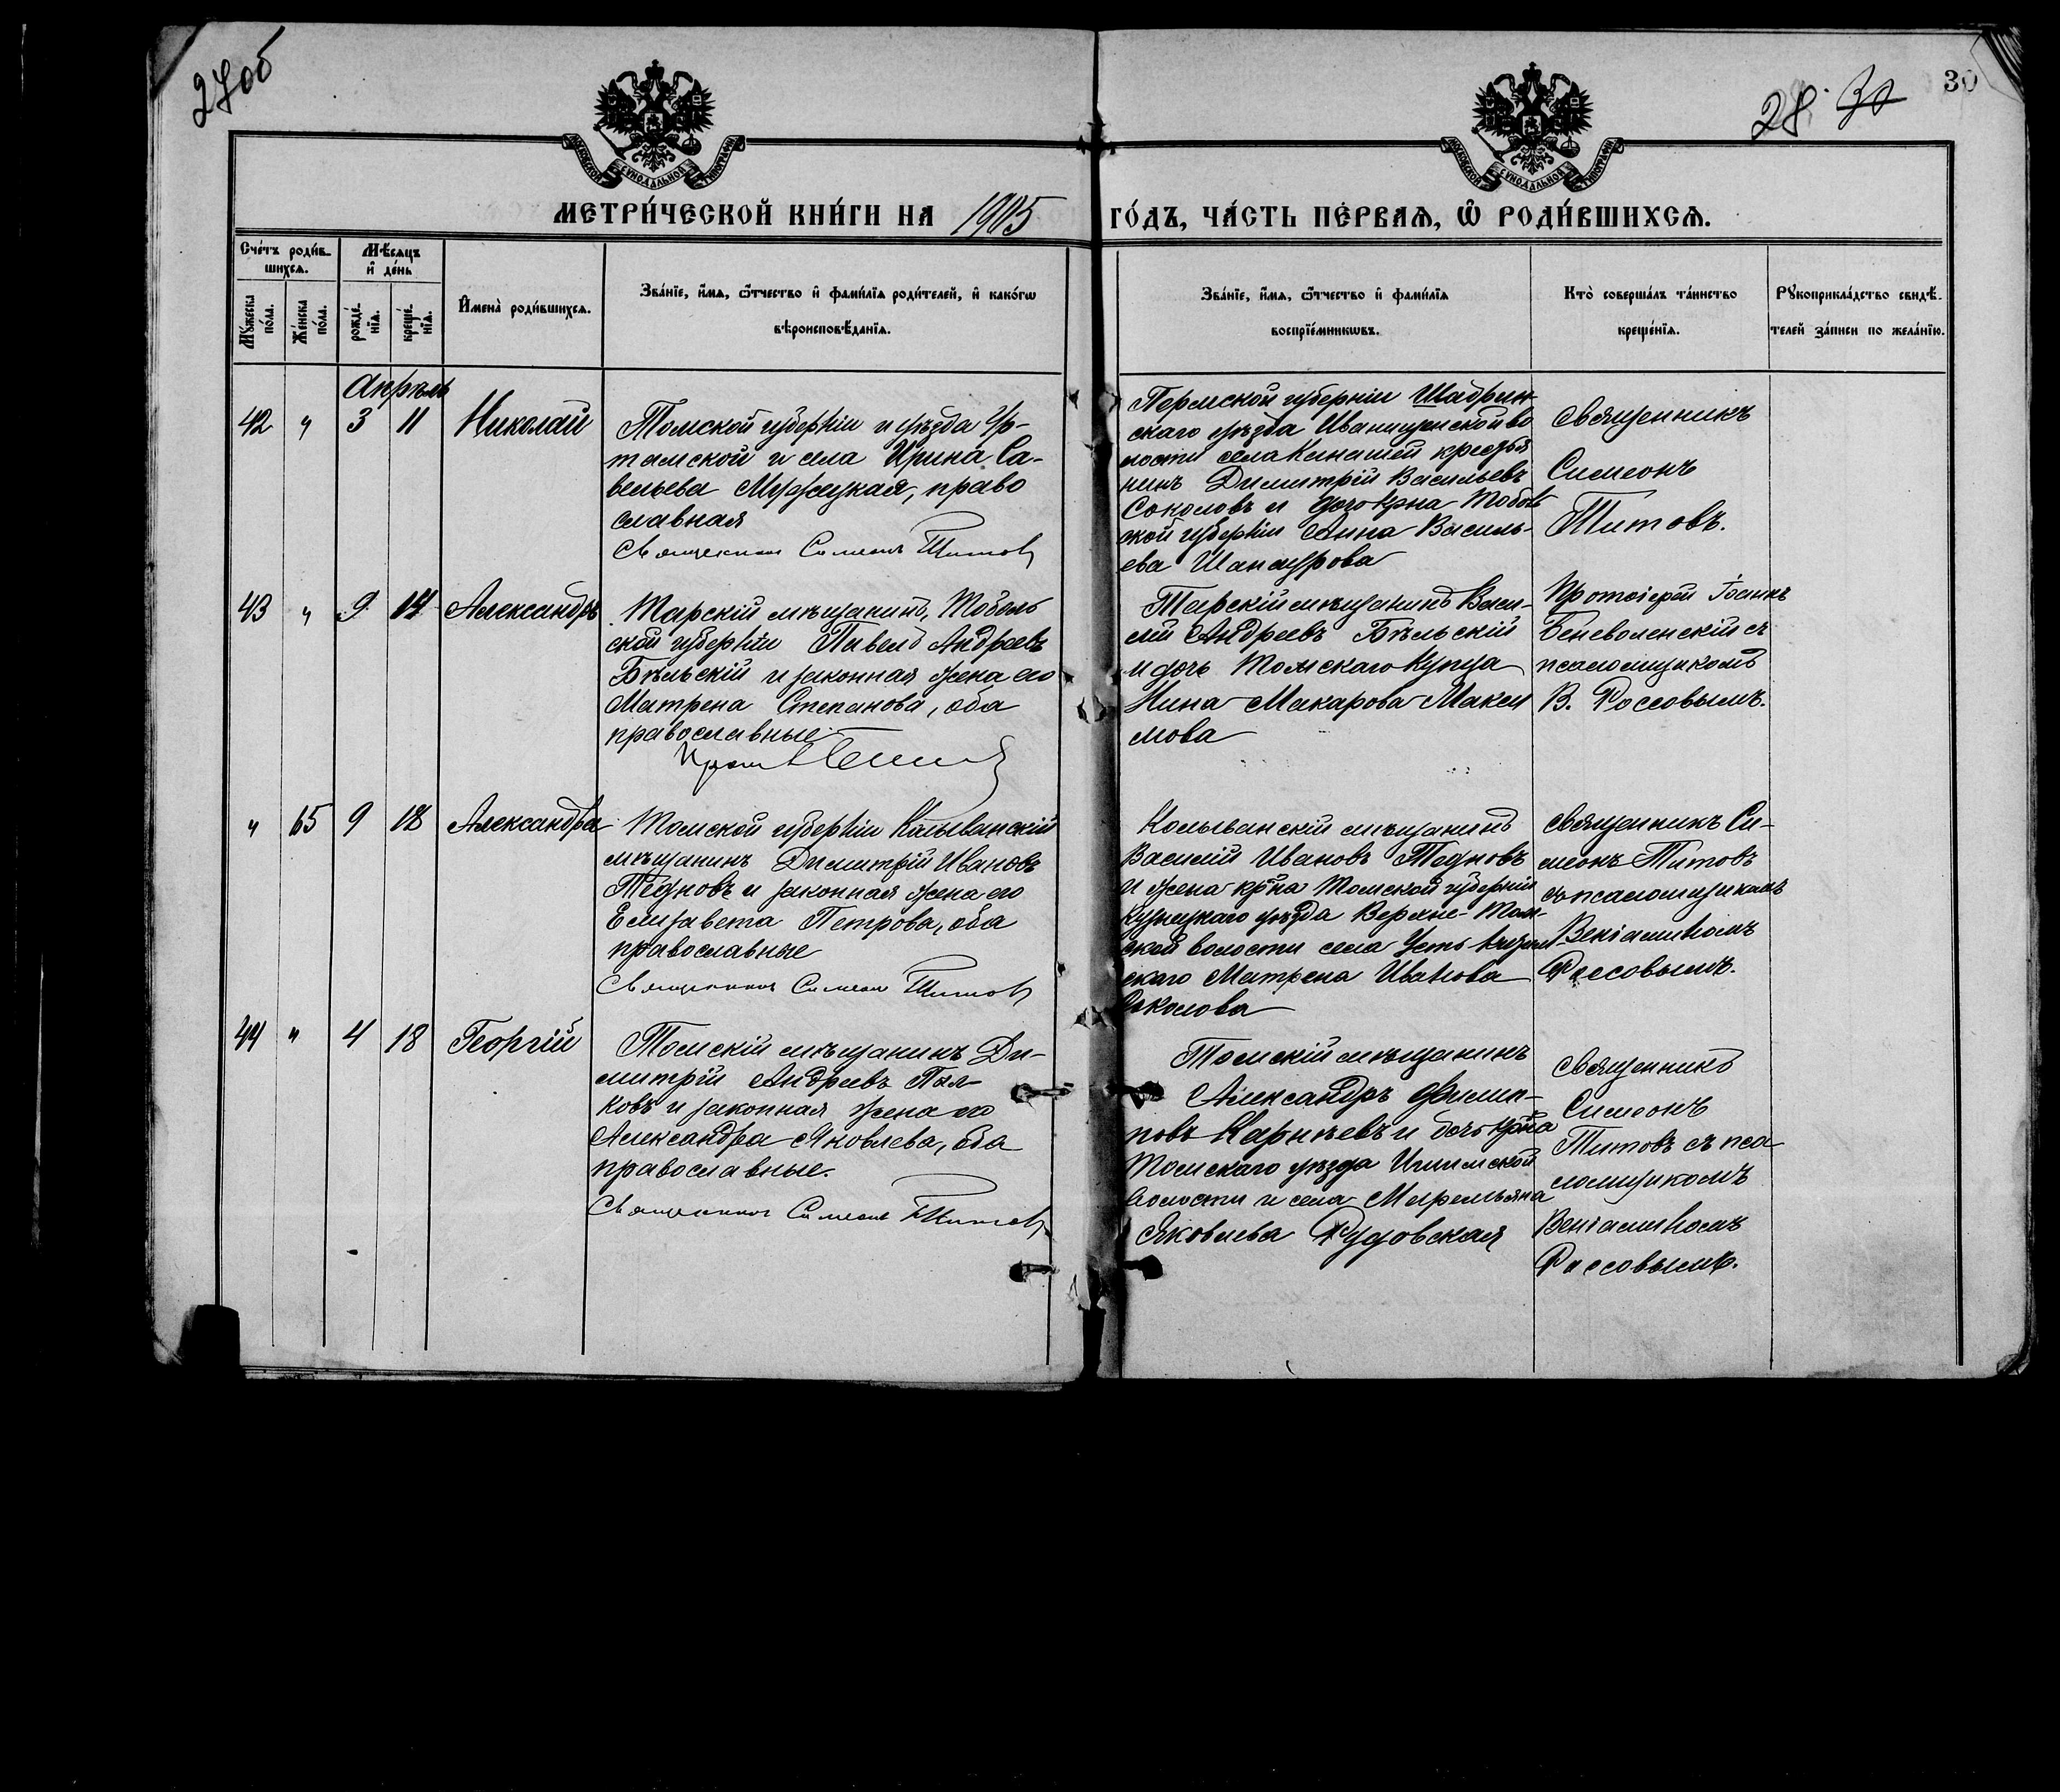 27об
28. 30
30
МОСКОВСКОЙ СѴНОДАЛЬНОЙ ТИПОГРАФІИ
МОСКОВСКОЙ СѴНОДАЛЬНОЙ ТИПОГРАФІИ
МЕТРИ́ЧЕСКОЙ КНИ́ГИ НА 1905 ГО́ДЪ, ЧА́СТЬ ПЕ́РВАѦ, Ѡ҆ РОДИ́ВШИХСѦ.
Сче́тъ роди́в-
шихсѧ.
Мꙋ́жеска по́ла.
Же́нска по́ла.
Мѣ́сѧцъ и҆ де́нь
рожде́-
нїѧ.
креще́-
нїѧ.
И҆мена̀ роди́вшихсѧ.
Зва́нїе, и҆́мѧ, ѻ҆́тчество и҆ фами́лїѧ роди́телей, и҆ како́гѡ
вѣроисповѣ́данїѧ.
Зва́нїе, и҆́мѧ, ѻ҆́тчество и҆ фами́лїѧ
воспрїе́мникѡвъ.
Кто̀ соверша́лъ та́инство
креще́нїѧ.
Рꙋкоприкла́дство свидѣ́-
телей за́писи по жела́нїю.
Апрѣль
42 " 3 11 Николай
Томской губерніи и уѣзда Ур-
тамской и села Ирина Са-
вельева Муржицкая, право
славная
Священникъ Симеонъ Титовъ
Пермской губерніи Шадрин-
скаго уѣзда Иванищенской во
лости села Канашей крестья
нинъ Димитрій Васильевъ
Соколовъ и дочь кр-на Тоболь
ской губерніи Анна Василь-
ева Шанаурова
Священникъ
Симеонъ
Титовъ.
43 " 9 14 Александръ
Тарскій мѣщанинъ, Тоболь
ской губерніи Павелъ Андреевъ
Бѣльскій и законная жена его
Матрена Степанова, оба
православные
Тарскій мѣщанинъ Васи-
лій Андреевъ Бѣльскій
и дочь Томскаго купца
Нина Макарова Макси
мова
Протоіерей Іоаннъ
Беневоленскій съ
псаломщикомъ
В. Россовымъ.
" 65 9 18 Александра
Томской губерніи Колыванскій
мѣщанинъ Димитрій Ивановъ
Тедуновъ и законная жена его
Елизавета Петрова, оба
православные
Священникъ Симеонъ Титовъ
Колыванскій мѣщанинъ
Василій Ивановъ Тедуновъ
и жена кр-на Томской губерніи
Кузнецкаго уѣзда Верхне-Том-
ской волости села Усть
скаго Матрена Иванова
Соколова
Священникъ Си-
меонъ Титовъ
съ псаломщикомъ
Веніаминомъ
Россовымъ.
44 " 4 18 Георгій
Томскій мѣщанинъ Ди-
митрій Андреевъ Пал-
ковъ и законная жена его
Александра Яковлева, оба
православные.
Священникъ Симеонъ Титовъ
Томскій мѣщанинъ
Александръ Филип-
повъ Карнѣевъ и дочь кр-на
Томскаго уѣзда Ишимской
волости и села Маремьяна
Яковлева Рудовская
Священникъ
Симеонъ
Титовъ съ пса
ломщикомъ
Веніаминомъ
Россовымъ.